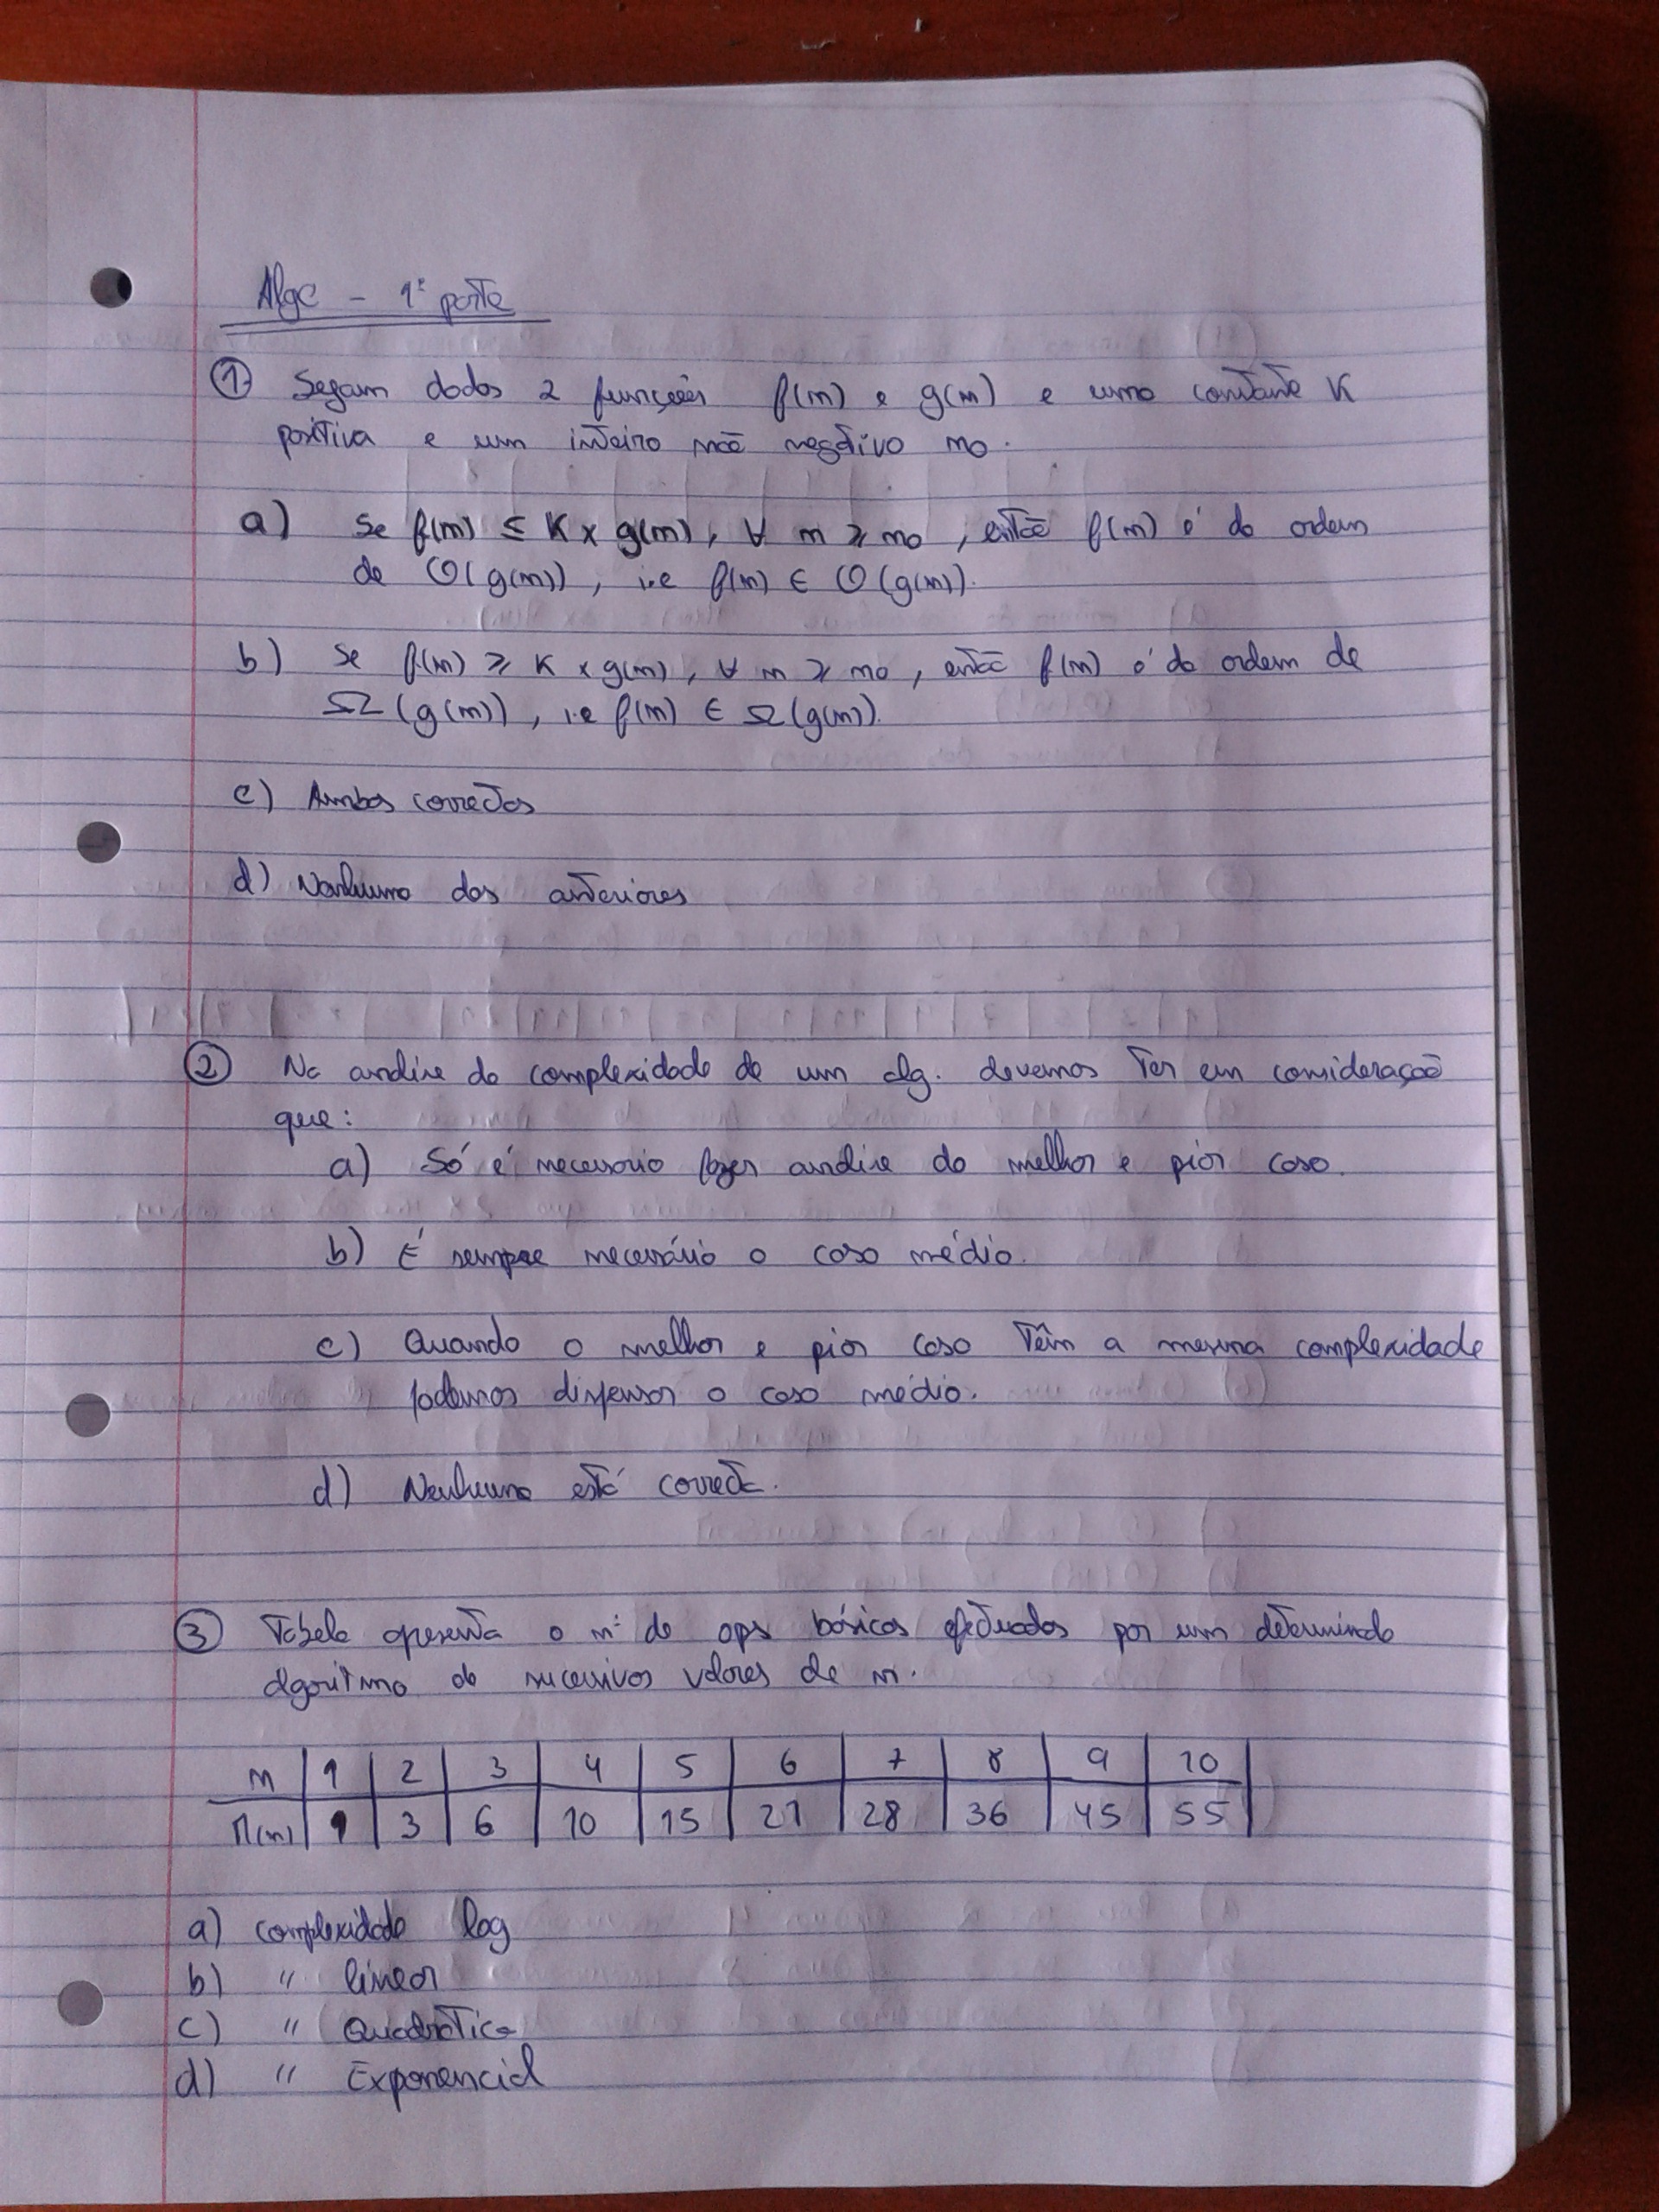 Algc - 1ª parte
① Sejam dados 2 funções f(n) e g(n) e uma constante K
positiva e um inteiro não negativo no.
a) Se f(n) ≤ K x g(n), ∀ n ≥ no, então f(n) é da ordem
de O(g(n)), i.e f(n) ∈ O(g(n)).
b) Se f(n) ≥ K x g(n), ∀ n ≥ no, então f(n) é da ordem de
Ω(g(n)), i.e f(n) ∈ Ω(g(n)).
c) Ambas corretas
d) Nenhuma das anteriores
② Na análise da complexidade de um alg. devemos ter em consideração
que:
a) Só é necessario fazer análise do melhor e pior caso.
b) É sempre necessário o caso médio.
c) Quando o melhor e pior caso têm a mesma complexidade
podemos dispensar o caso médio.
d) Nenhuma está correta.
③ Tabela apresenta o nº de ops básicas efetuadas por um determinado
algoritmo de sucessivos valores de n.
n | 1 | 2 | 3 | 4 | 5 | 6 | 7 | 8 | 9 | 10 |
M(n) | 1 | 3 | 6 | 10 | 15 | 21 | 28 | 36 | 45 | 55 |
a) complexidade log
b) " linear
c) " Quadrática
d) " Exponencial